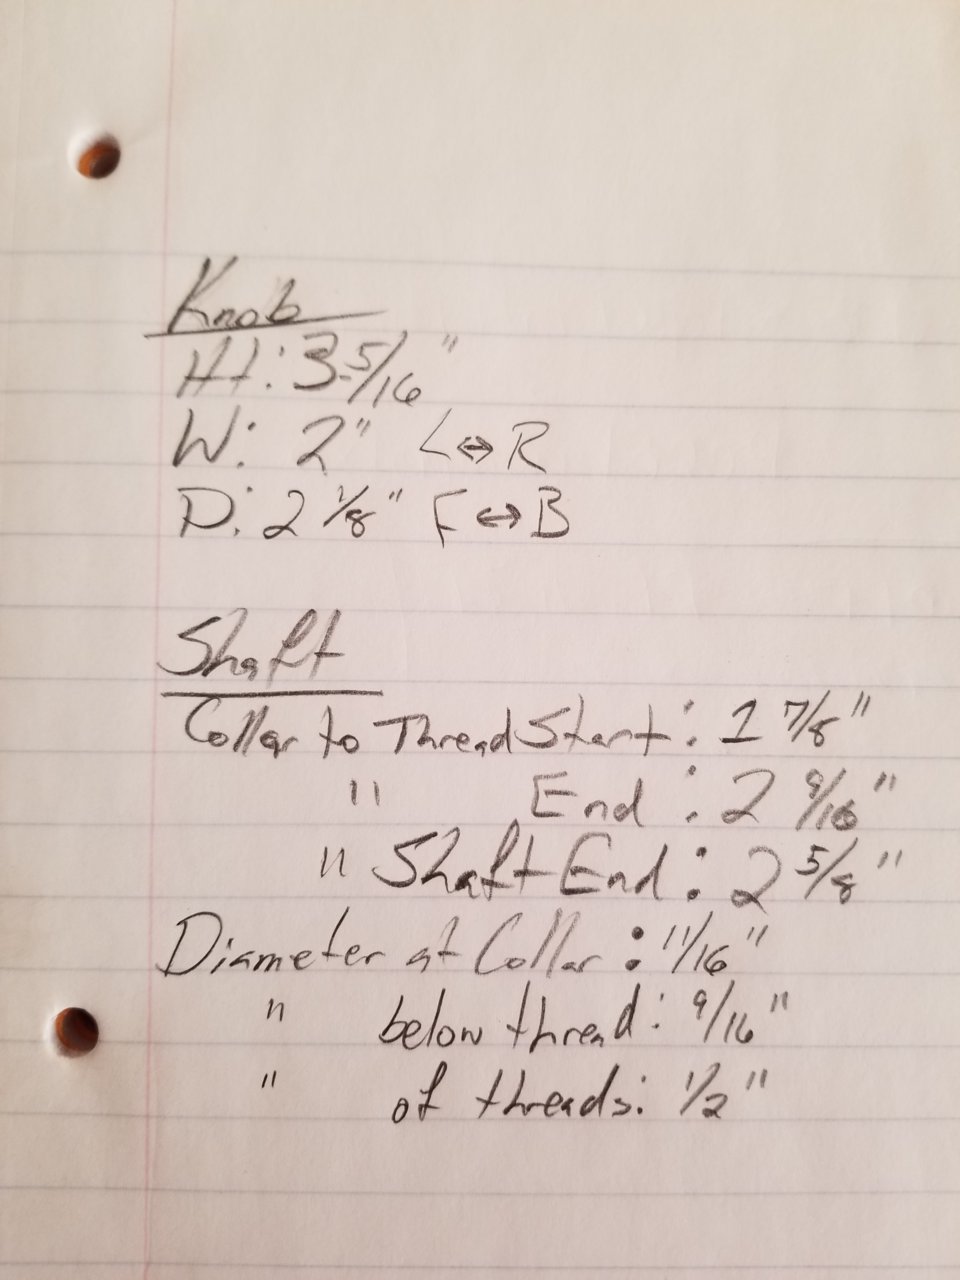 Knob
Ht: 3-5/16"
W: 2" L↔R
D: 2 1/8" F↔B
Shaft
Collar to Thread Start: 1 7/8"
" End: 2 9/16"
" Shaft End: 2 5/8"
Diameter at Collar: 11/16"
" below thread: 9/16"
" of threads: 1/2"